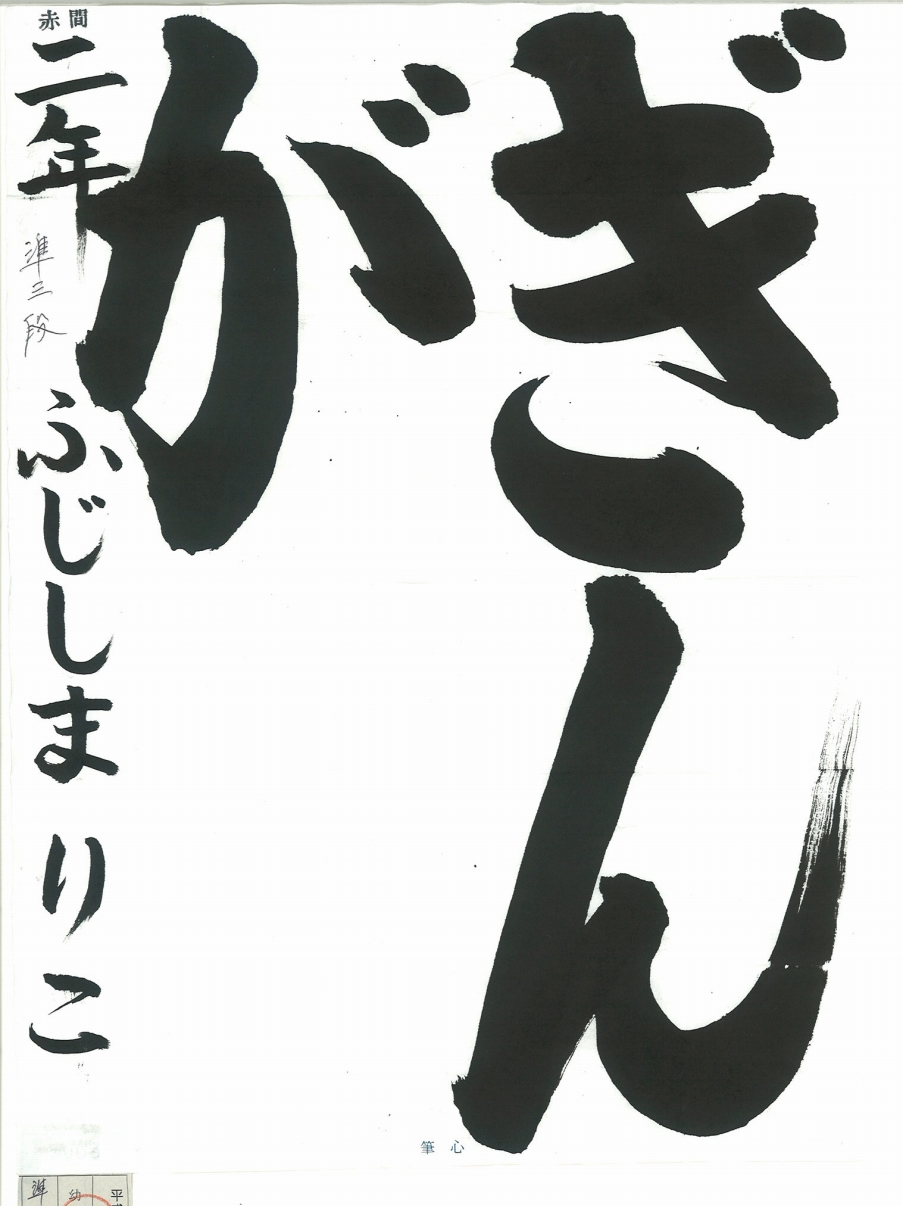 ぎん
が
赤間
二年
準三段
ふじしま りこ
筆心
準
幼
平